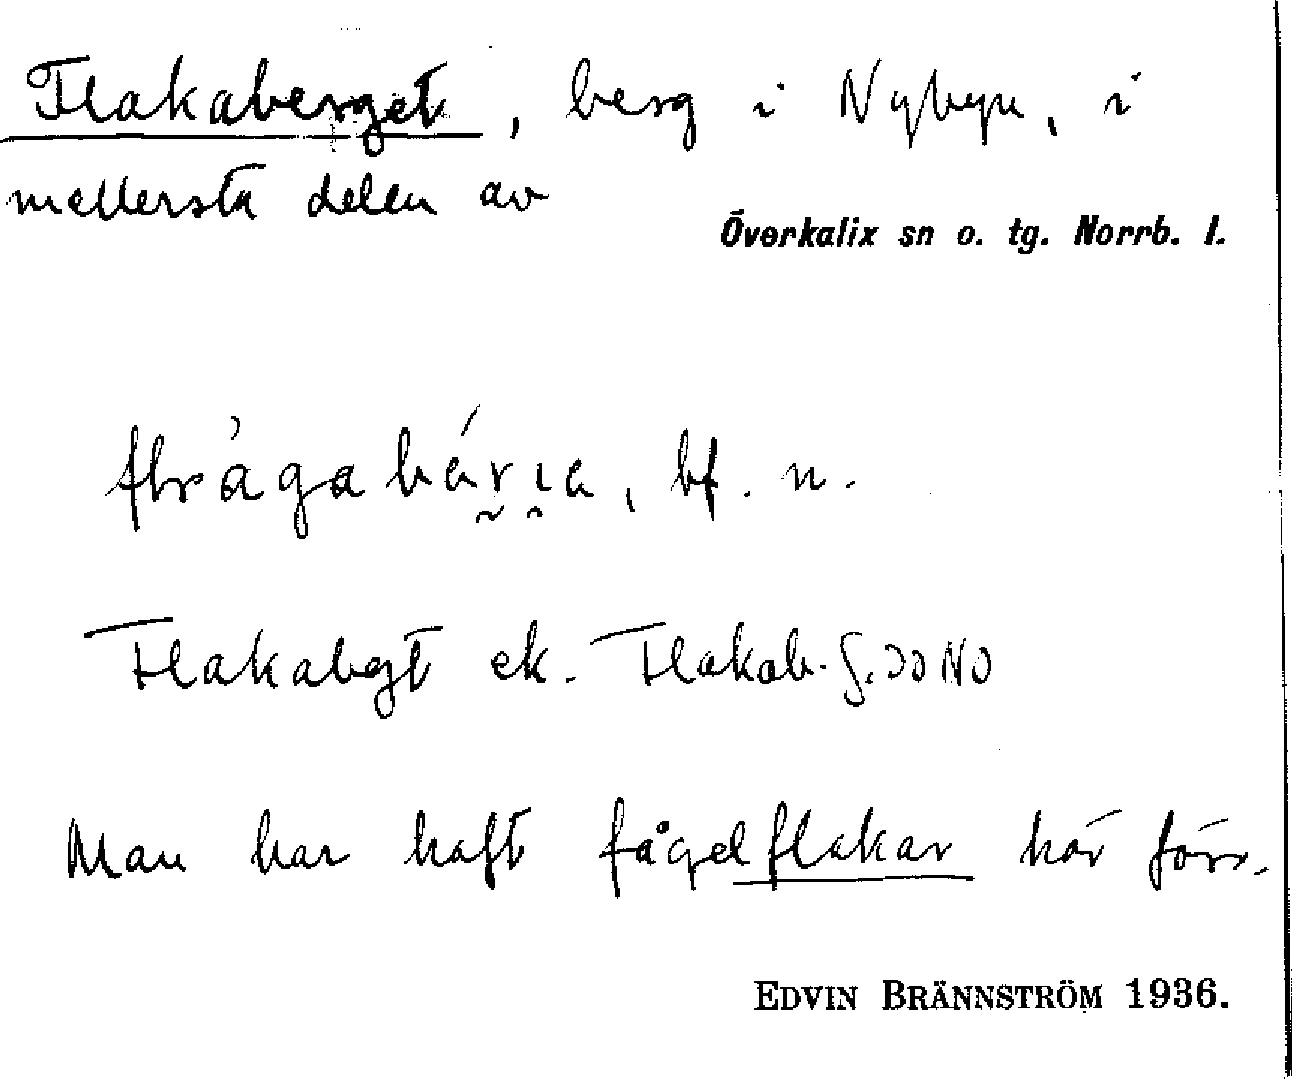 Flakaberget, berg i Nybyn, i
mellersta delen av
Överkalix sn o. tg. Norrb. l.
bf. n.
Flakabgt ek. Flakab. g. 30 NO
Man har haft fågelflakar här förr.
EDVIN BRÄNNSTRÖM 1936.